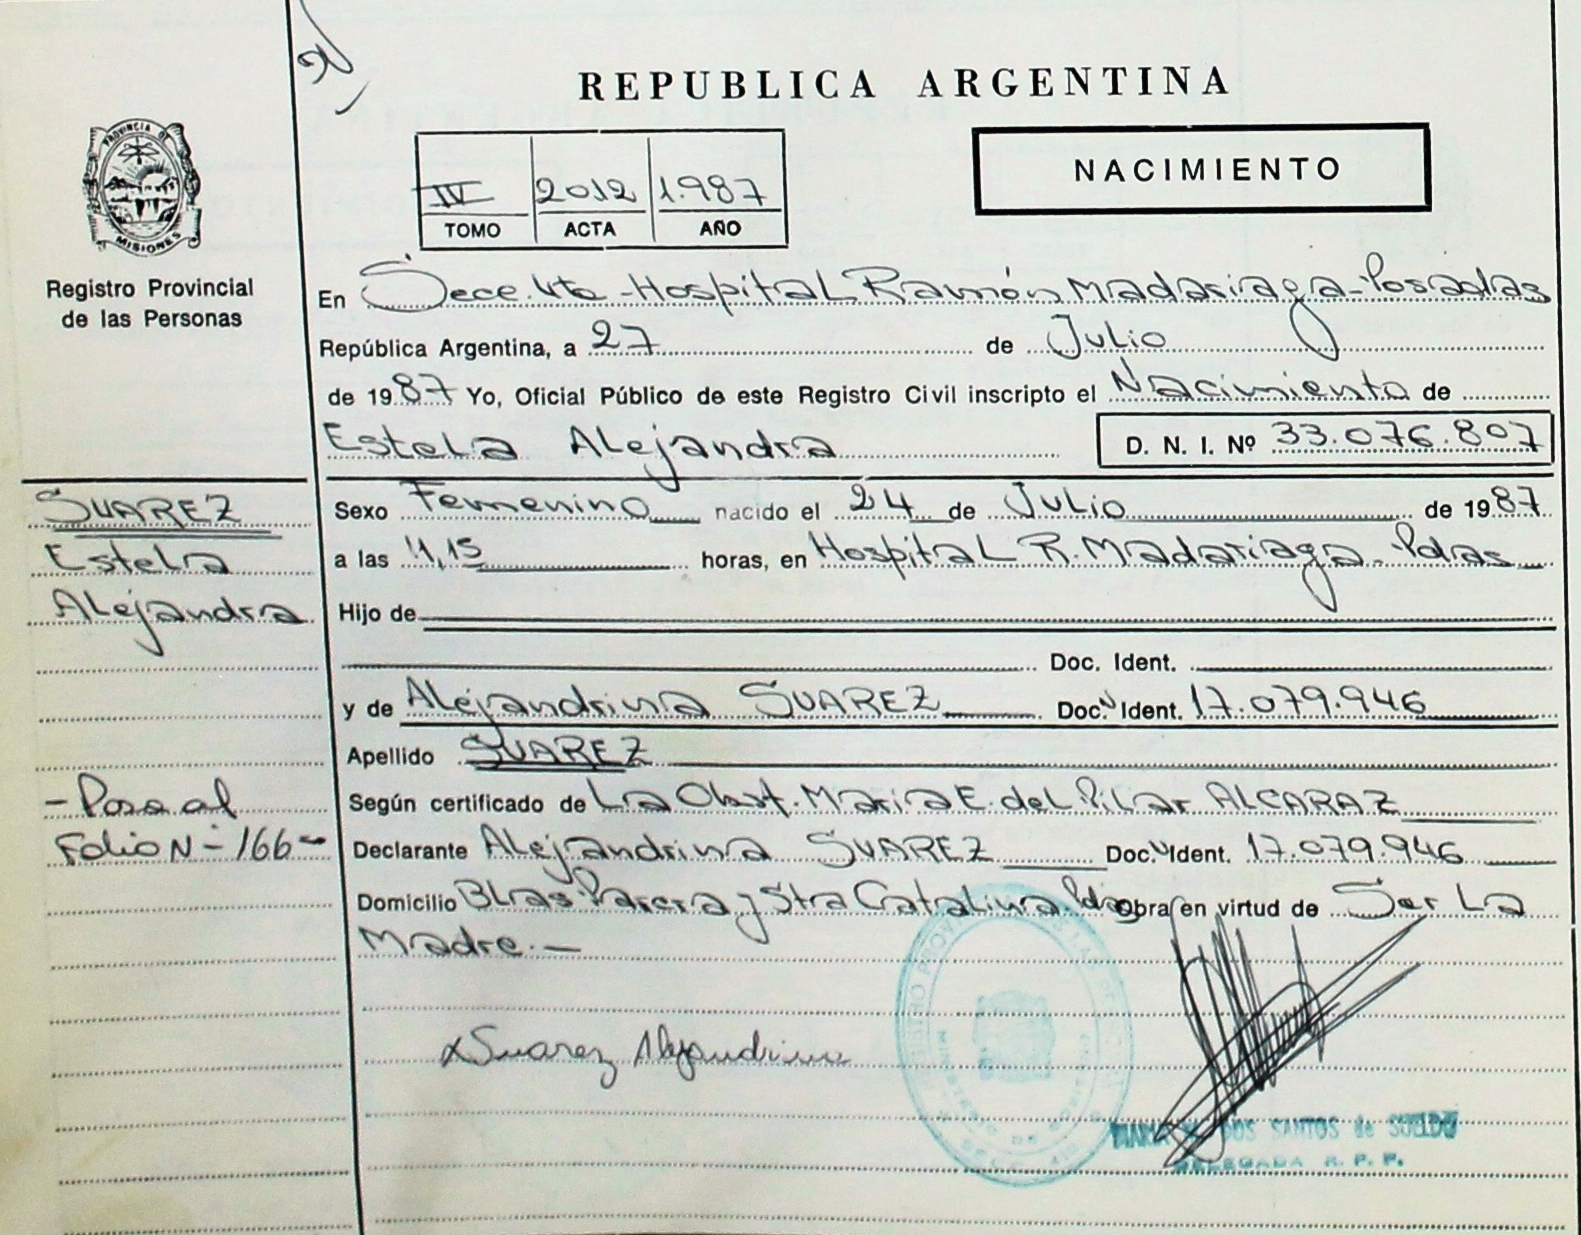 REPUBLICA ARGENTINA
PROVINCIA DE
MISIONES
Registro Provincial
de las Personas
IV 2012 1.987
TOMO ACTA AÑO
NACIMIENTO
En Secc. 4ta - Hospital Ramón Madariaga - Posadas
República Argentina, a 27 de Julio
de 1987 Yo, Oficial Público de este Registro Civil inscripto el Nacimiento de
Estela Alejandra D. N. I. Nº 33.076.807
SUAREZ
Estela
Alejandra
Sexo Femenino nacido el 24 de Julio de 1987
a las 11,15 horas, en Hospital R. Madariaga - Pdas
Hijo de
Doc. Ident.
y de Alejandrina SUAREZ Doc. Ident. 17.079.946
Apellido SUAREZ
- Pasa al
Folio N - 166 -
Según certificado de La Obst. Maria E. del Pilar ALCARAZ
Declarante Alejandrina SUAREZ Doc. Ident. 17.079.946
Domicilio Blas Parera y Sta Catalina Pdas Obra en virtud de Ser La
Madre. -
Suarez Alejandrina
DOS SANTOS de SUELDO
DELEGADA R. P. P.